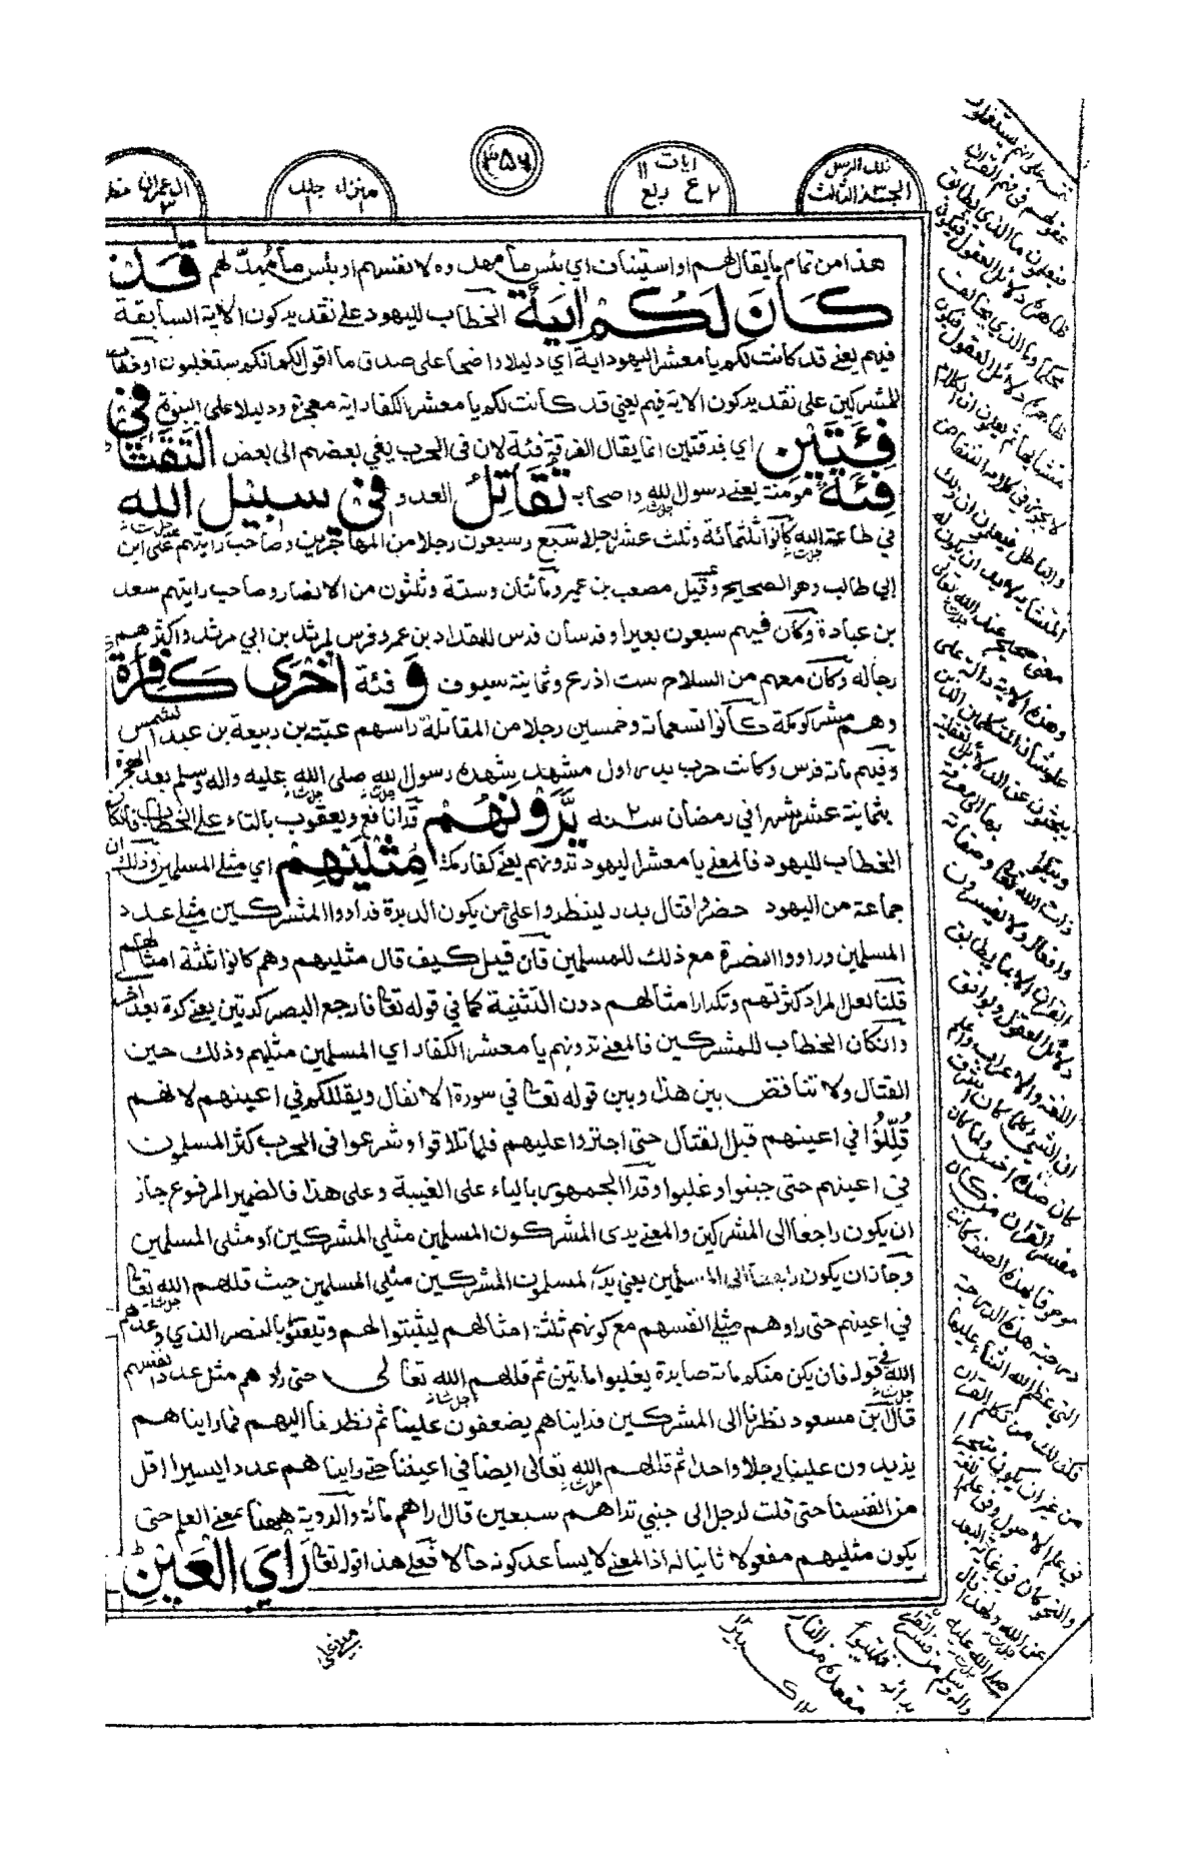 تلك الرسل
الجزء الثالث
ايات ١١
٢ ع ربع
٣٥٦
منزل ١ جلد ١
ال عمران
٣
هذا من تمام ما يقال لهم او استيناف اي بئس ما مهدوه لانفسهم او بئس ما مُهِدَ لهم قَدْ
كَانَ لَكُمْ اٰيَةٌ الخطاب لليهود على تقدير كون الاية السابقة
فيهم يعني قد كانت لكم يا معشر اليهود اية اي دليلا واضحا على صدق ما اقول لكم انكم ستغلبون او
للمشركين على تقدير كون الاية فيهم يعني قد كانت لكم يا معشر الكفار اية معجزة ودليلا على النبوة فِيْ
فِئَتَيْنِ اي فرقتين انما يقال الفرقة فئة لان في الحرب يفي بعضهم الى بعض الْتَقَتَا
فِئَةٌ مومنة يعني رسول الله واصحابه تُقَاتِلُ العدو فِيْ سَبِيْلِ اللهِ
في طاعة الله كانوا ثلثمائة وثلث عشر رجلا سبع وسبعون رجلا من المهاجرين وصاحب رايتهم علي ابن
ابي طالب وهو الصحيح وقيل مصعب بن عمير ومأتان وستة وثلثون من الانصار وصاحب رايتهم سعد
بن عبادة وكان فيهم سبعون بعيرا وفرسان فرس للمقداد بن عمر وفرس لمرثد بن ابي مرثد واكثرهم
رجاله وكان معهم من السلاح ست اذرع وثمانية سيوف وَ فئة اُخْرٰى كَافِرَةٌ
وهم مشركو مكة كانوا تسعمائة وخمسين رجلا من المقاتلة راسهم عتبة بن ربيعة بن عبد الشمس
وفيهم مائة فرس وكانت حرب بدر اول مشهد شهده رسول الله صلى الله عليه واله وسلم بعد الهجرة
بثمانية عشر شهرا في رمضان سنه ٢ يَّرَوْنَهُمْ قرا نافع ويعقوب بالتاء على الخطاب فان كان
الخطاب لليهود فالمعنى يا معشر اليهود ترونهم يعني كفار مكة مِثْلَيْهِمْ اي مثلي المسلمين وذلك ان
جماعة من اليهود حضروا قتال بدر لينظروا على من يكون الدبرة فراووا المشركين مثلي عدد
المسلمين وراووا النصرة مع ذلك للمسلمين فان قيل كيف قال مثليهم وهم كانوا ثلثة امثالهم
قلنا لعل المراد كثرتهم وتكرار امثالهم دون التثنية كما في قوله تعا فارجع البصر كرتين يعني كرة بعد اخرى
وان كان الخطاب للمشركين فالمعنى ترونهم يا معشر الكفار اي المسلمين مثليهم وذلك حين
القتال ولا تناقض بين هذا وبين قوله تعا في سورة الانفال ويقللكم في اعينهم لانهم
قُلِّلُوْا في اعينهم قبل القتال حتى اجتروا عليهم فلما تلاقوا وشرعوا في الحرب كثر المسلمون
في اعينهم حتى جبنوا وغلبوا وقرا الجمهور بالياء على الغيبة وعلى هذا فالضمير المرفوع جاز
ان يكون راجعا الى المشركين والمعنى يرى المشركون المسلمين مثلي المشركين او مثلي المسلمين
وجاز ان يكون راجعا الى المسلمين يعني يرى المسلمون المشركين مثلي المسلمين حيث قللهم الله تعا
في اعينهم حتى راوهم مثلي انفسهم مع كونهم ثلثة امثالهم ليثبتوا لهم ويتيقنوا بالنصر الذي وعدهم
الله في قوله فان يكن منكم مائة صابرة يغلبوا مأتين ثم قللهم الله تعالى حتى راوهم مثل عدد انفسهم
قال بن مسعود نظرنا الى المشركين فرايناهم يضعفون علينا ثم نظرنا اليهم فما رايناهم
يزيدون علينا رجلا واحدا ثم قللهم الله تعالى ايضا في اعيننا حتى رايناهم عددا يسيرا اقل
من انفسنا حتى قلت لرجل الى جنبي تراهم سبعين قال اراهم مائة والروية ههنا بمعنى العلم حتى
يكون مثليهم مفعولا ثانيا له اذ المعنى لا يساعد كونه حالا فعلى هذا قوله تعا رَاْيَ الْعَيْنِ
عقولهم في فهم القران
فيعلمون ما الذي يطابق
ظاهره دلائل العقول فيكون
محكما وما الذي يخالف
ظاهره دلائل العقول فيكون
متشابها ثم يعلمون ان الكلام
لا يجوز في كلامه التناقض
والباطل فيعلمون ان ذلك
المتشابه لا بد ان يكون له
معنى صحيح عند الله تعالى
وهذه الاية دالة على
علو شان المتكلمين الذين
يبحثون عن الدلائل العقلية
ذات الله تعا وصفاته
وافعاله ولا يفسرون
القران الا بما يطابق
دلائل العقول ويوافق
اللغة والاعراب واعلم
ان الشي كلما كان اشرف
كان ضده اخس ولما كان
مفسر القران متى كان
موصوفا بهذه الصفة كانت
درجته هذه الدرجة
التي عظم الله الثناء عليها
فكذلك من تكلم في القران
من غير ان يكون متبحرا
في علم الاصول وفي علم اللغة
والنحو كان في غاية البعد
عن الله ولهذا قال
صلى الله عليه
واله وسلم من فسر القران
برائه فليتبوأ
مقعده من النار